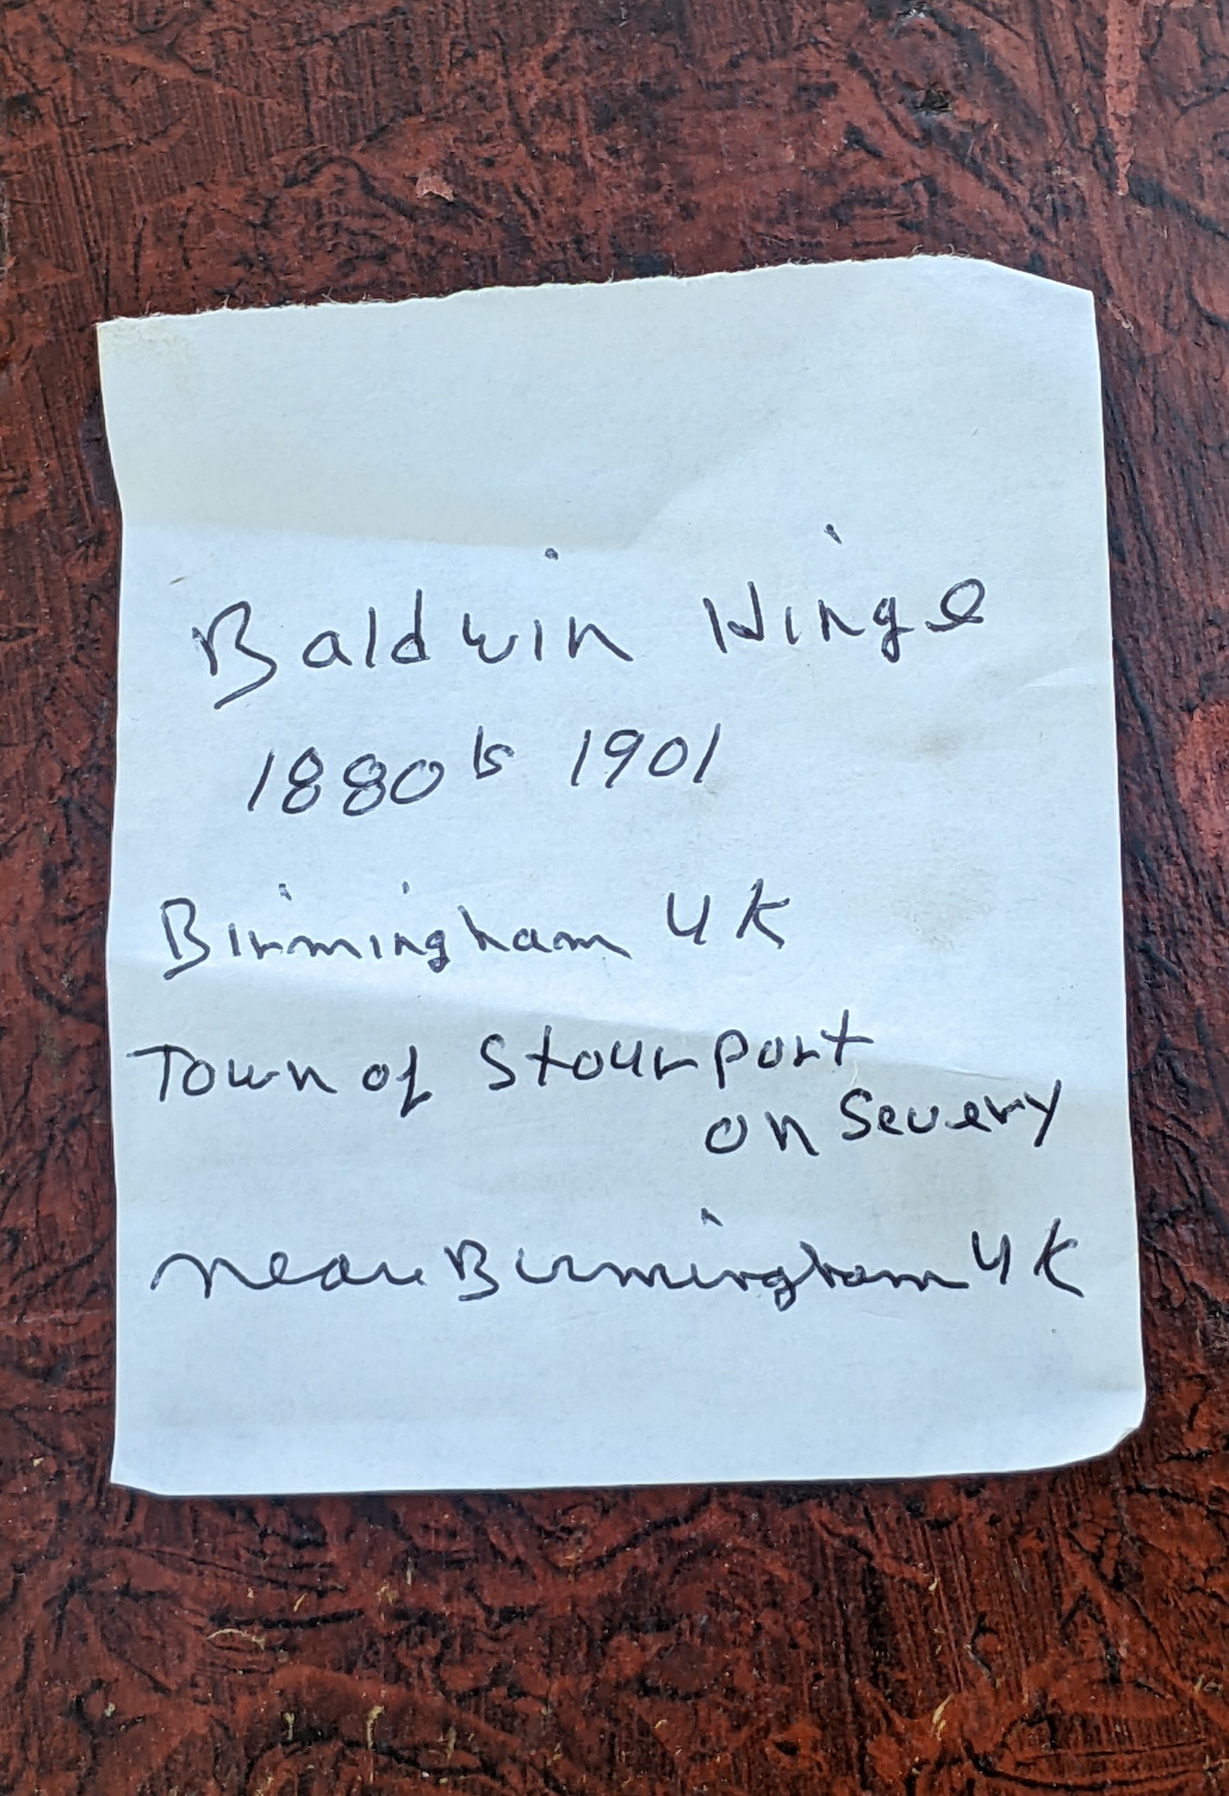 Baldwin Hinge
1880 to 1901
Birmingham UK
Town of Stourport
on Severy
near Birmingham UK